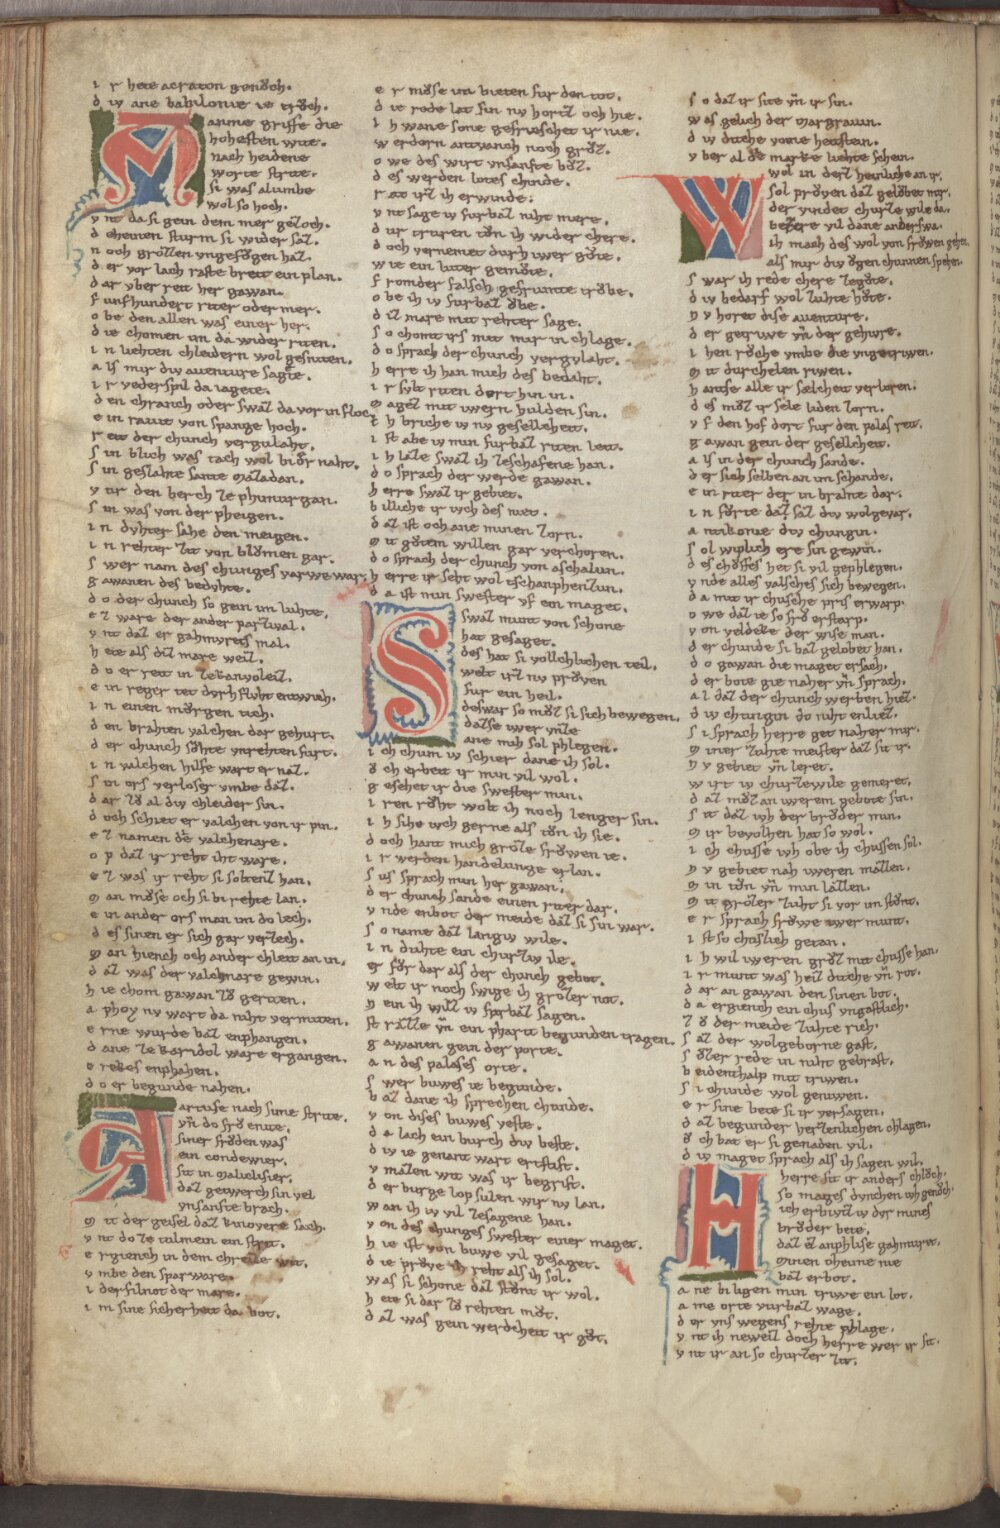 i r hete acraton genoͮch.
d iv ane babilonie ie troͮch.
M anne griffe die
hohesten wite.
nach heidene
worte strite.
si was alumbe
wol so hoch.
v nt da si gein dem mer gezoch.
d eheinen sturm si wider saz.
n och grozzen vngefogen haz.
d er vor lach raste breit ein plan.
d ar vber reit her gawan.
f unfhundert riter oder mer.
o be den allen was einer her.
d ie chomen im da wider riten.
i n liehten chleidern wol gesniten.
a ls mir div auenture sagte.
i r vederspil da iagete.
d en chranch oder swaz da vor in floc.
e in ravit von spange hoch.
r eit der chunch vergulaht.
s in blich was tach wol bi der naht.
s in geslahte sante mazadan.
v ur den berch ze phimurgan.
s in was von der pheigen.
i n dvhter sahe den meigen.
i n rehter zit von bloͮmen gar.
s wer nam des chunges varwe war.
g awanen des bedvhte.
d o der chunch so gein im luhte.
e z ware der ander parzival.
v nt daz er gahmvrets mal.
h ete als diz mare weiz.
d o er reit in ze kanvoleiz.
e in reger tet dvrh fluht entwich.
i n einen moͮrgen tich.
d en brahten valchen dar gehurt.
d er chunch soͮhte vnrehten furt.
i n valchen hilfe wart er naz.
s in ors verlos er vmbe daz.
d ar zoͮ al div chleider sin.
d och schiet er valchen von ir pin.
e z namen die valchenare.
o p daz ir reht iht ware.
e z was ir reht si soltenz han.
m an moͮse och si bi rehte lan.
e in ander ors man im do lech.
d es sinen er sich gar verzech.
m an hiench och ander chleit an in.
d az was der valchnare gewin.
h ie chom gawan zoͮ geriten.
a vhoy nv wart da niht vermiten.
e rne wurde baz enphangen.
d ane ze karidol ware ergangen.
e rekes enphahen.
d o er begunde nahen.
A rtuse nach sime strite.
vn do froͮ enite.
siner froͮden was
ein condewier.
sit im maliclisier.
daz getwerch sin vel
vnsanfte brach.
m it der geisel daz kinovere sach.
v nt do ze tulmein ein strit.
e rgiench in dem chreize wit.
v mbe den sparware.
i der filnot der mare.
i m sine sicherheit da bot.
e r moͮse im bieten fur den tot.
d ie rede lat sin nv hortz och hie.
i h wane sone gefrieschet ir nie.
w erdern antvanch noch groͮz.
o we des wirt vnsanfte boͮz.
d es werden lotes chinde.
r at irz ih erwinde.
v nt sage iv furbaz niht mere.
d ur truren toͮn ih wider chere.
d och vernemet durh iwer goͮte.
w ie ein luter gemoͮte.
f romder falsch gefrumte troͮbe.
o be ih iv furbaz oͮbe.
d iz mare mit rehter sage.
s o chomt irs mit mir in chlage.
d o sprach der chunch vergvlaht.
h erre ih han mich des bedaht.
i r sylt riten dort hin in.
m agez mit iwern hulden sin.
i h briche iv nv gesellecheit.
i st abe iv min furbaz riten leit.
i h laze swaz ih zeschafene han.
d o sprach der werde gawan.
h erre swaz ir gebiet.
b illiche ir ivch des niet.
d az ist och ane minen zorn.
m it goͮtem willen gar verchoren.
d o sprach der chunch von aschalun.
h erre ir seht wol tschanphenzun.
d a ist min swester vf ein maget.
S swaz munt von schone
hat gesaget.
des hat si vollchlichen teil.
welt irz nv prvven
fur ein heil.
deswar so moͮz si sich bewegen.
dazse iwer vnze
ane mih sol phlegen.
i ch chum iv schier dane ih sol.
oͮ ch erbeit ir min vil wol.
g esehet ir die swester min.
i ren roͮht wolt ih noch lenger sin.
i h sihe ivch gerne als toͮn ih sie.
d och hant mich groͮze froͮwen ie.
i r werden handelunge erlan.
s us sprach min her gawan.
d er chunch sande einen riter dar.
v nde enbot der meide daz si sin war.
s o name daz langiv wile.
i n duhte ein churziv ile.
er foͮr dar als der chunch gebot.
w elt ir noch swige ih groͮzer not.
n ein ih wilz iv furbaz sagen.
st razze vn ein pharit begunden tragen.
g awanen gein der porte.
a n des palases orte.
s wer buwes ie begunde.
b az dane ih sprechen chunde.
v on dises buwes veste.
d a lach ein burch div beste.
d iv ie genant wart ertstift.
v mazen wit was ir begrift.
d er burge lop sulen wir nv lan.
w an ih iv vil zesagene han.
v on des chunges swester einer maget.
h ie ist von buwe vil gesaget.
d ie prvve ih reht als ih sol.
w as si schone daz stoͮnt ir wol.
h ete si dar zoͮ rehten moͮt.
d az was gein werdecheit ir goͮt.
s o daz ir site vn ir sin.
w as gelich der margravin.
d iv diche vonme heitstein.
v ber al die marke liehte schein.
W wol im derz heinliche an ir.
sol prvven daz gelobet mir.
der vindet churzewile da.
bezere vil dane anderswa.
ih mach des wol von froͮwen gehen.
als mir div oͮgen chunnen spehen.
s war ih rede chere zegoͮte.
d iv bedarf wol zuhte hoͮte.
n v horet dise auenture.
d er getriwe vn der gehivre.
i hen roͮche vmbe die vngetriwen.
m it durchelen riwen.
h antse alle ir sælcheit verloren.
d es moͮz ir sele liden zorn.
v f den hof dort fur den palas reit.
g awan gein der gesellecheit.
a ls in der chunch sande.
d er sich selben an im schande.
e in riter der in brahte dar.
i n foͮrte daz saz div wolgevar.
a ntikonie div chungin.
s ol wiplich ere sin gewin.
d es choͮffes het si vil gephlegen.
v nde alles valsches sich bewegen.
d a mit ir chuische pris erwarp.
o we daz ie so froͮ erstarp.
v on veldeke der wise man.
d er chunde si baz gelobet han.
d o gawan die maget ersach.
d er bote gie naher vn sprach.
a l daz der chunch werben hiez.
d iv chungin do niht enliez.
s i sprach herre get naher mir.
m iner zuhte meister daz sit ir.
n v gebiet vn leret.
w irt iv churzewile gemeret.
d az moͮz an iwerem gebote sin.
s it daz ivh der bruͦder min.
m ir bevolhen hat so wol.
i ch chusse ivh obe ih chussen sol.
n v gebiet nah iweren mazzen.
m in toͮn vn min lazzen.
m it groͮzer zuht si vor im stoͮnt.
e r sprach froͮwe iwer munt.
i st so chuslich getan.
i h wil iweren groͮz mit chusse han.
i r munt was heiz diche vn rot.
d ar an gawan den sinen bot.
d a ergiench ein chus vngastlich.
z oͮ der meide zuhte rich.
s az der wolgeborne gast.
s oͮzer rede in niht gebrast.
b eidenthalp mit triwen.
s i chunde wol geniwen.
e r sine bete si ir versagen.
d az begunder herzenlichen chlagen.
oͮ ch bat er si genaden vil.
d iv maget sprach als ih sagen wil.
H herre sit ir anders chloͮch.
so mages dvnchen ivh genoͮch.
ich erbivtz iv dvr mines
broͮder bete.
daz ez anphlise gahmuret.
minen oheime nie
baz erbot.
a ne biligen min triwe ein lot.
a me orte vurbaz wage.
d er vns wegens rehte phlage.
v nt ih neweiz doch herre wer ir sit.
v nt ir an so churzer zit.